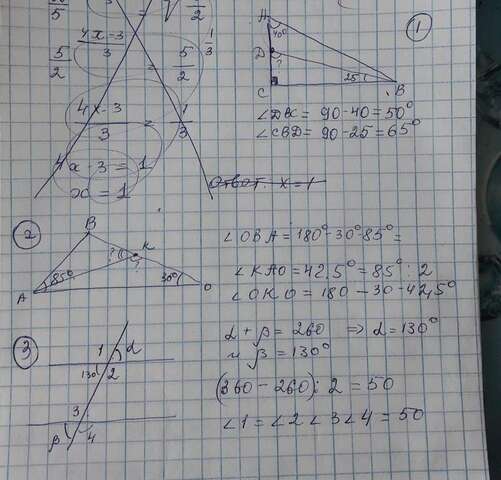 5
2
4x-3
3
1
3
5
2
=
5
2
4x-3
3
=
1
3
4x-3=1
x=1
Ответ: x=1
1
A
40°
D
?
C
25
B
∠DBC= 90-40=50°
∠CBD= 90-25=65°
2
B
K
?
?
85°
30°
A
O
∠OBA=180°-30°-85°=
∠KAO=42,5°=85°:2
∠OKO=180-30-42,5°
3
1
α
130
2
3
β
4
α+β=260 ⇒ α=130°
и β=130°
(360-260):2=50
∠1=∠2∠3∠4=50